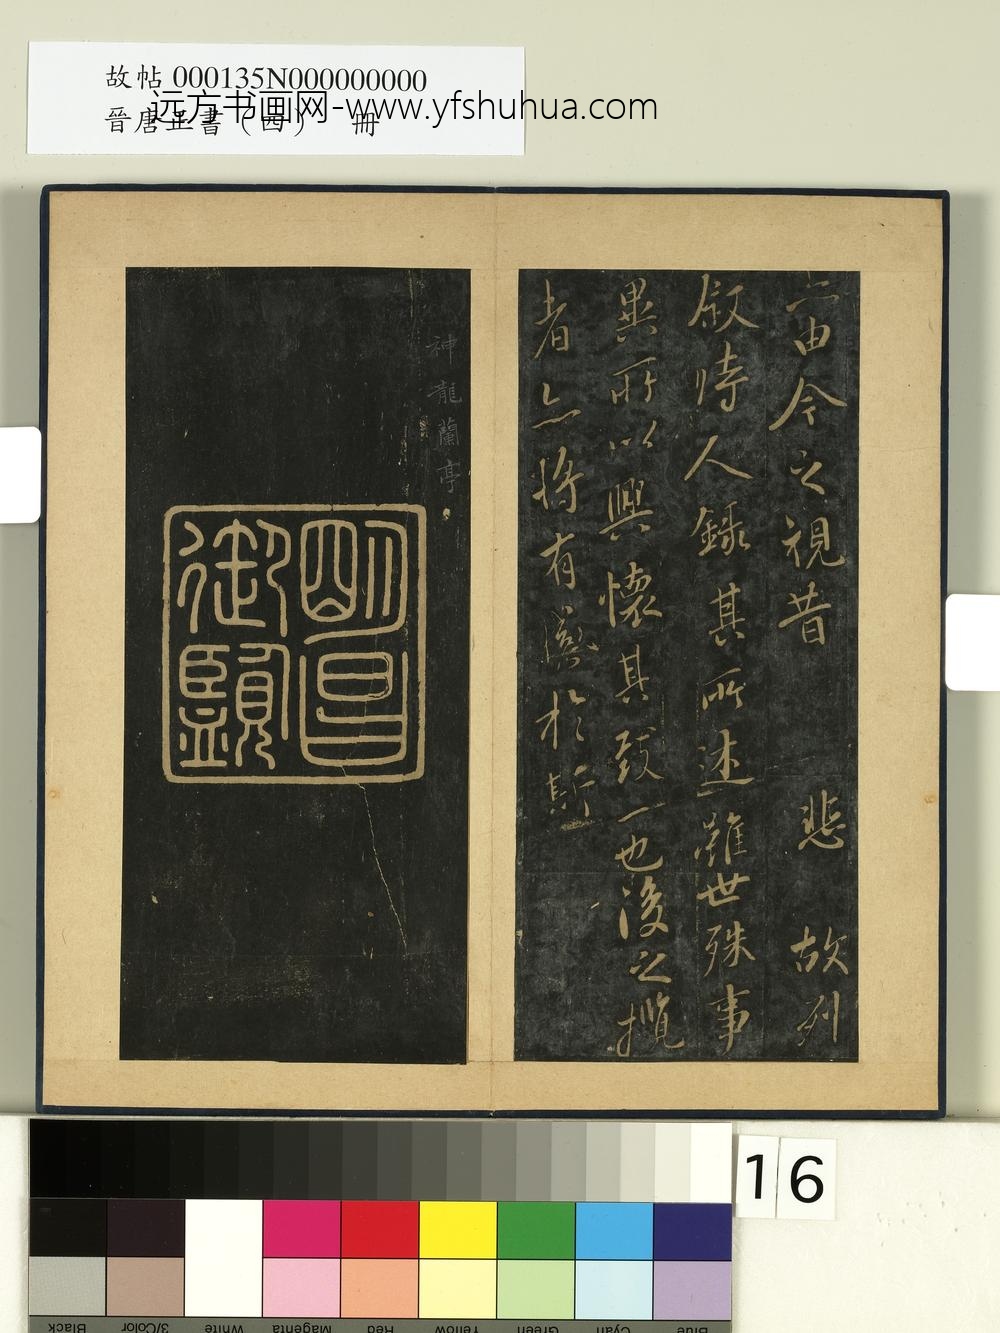 故帖 000135N000000000
晉唐正書（四） 冊
远方书画网-www.yfshuhua.com
亦由今之視昔 悲 故列
叙時人錄其所述雖世殊事
異所以興懷其致一也後之攬
者亦將有感於斯
神龍蘭亭
明昌
御覽
16
Black
3/Color
White
Magenta
Red
Yellow
Green
Cyan
Blue